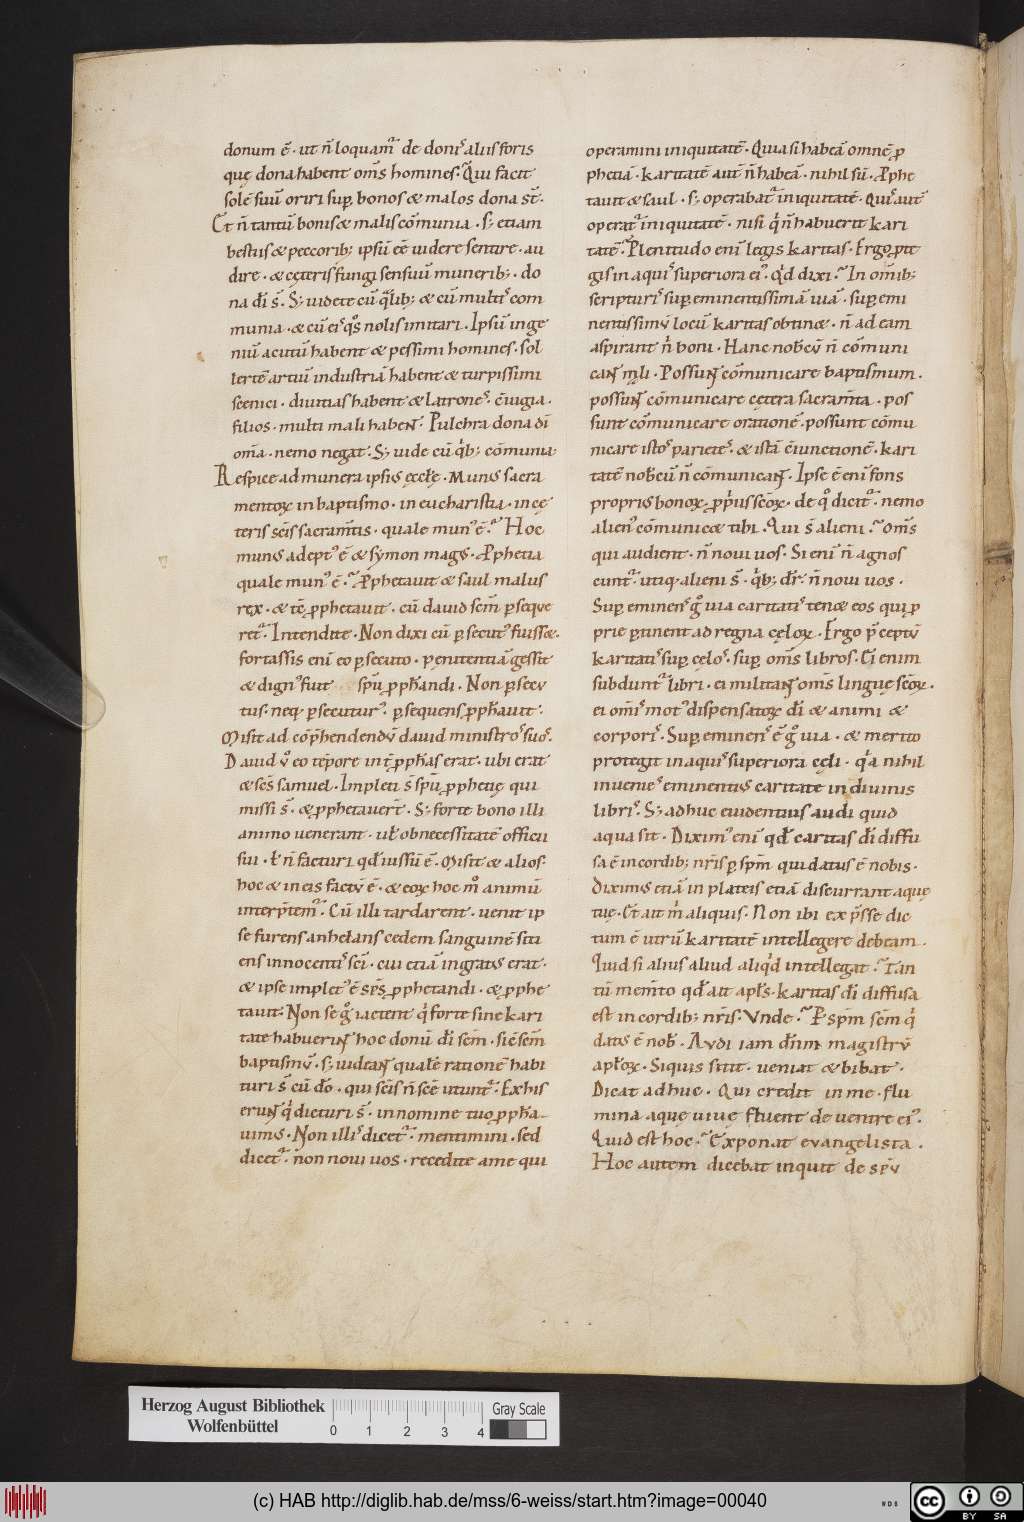 donum ē · ut n̄ loquam᷑ de doniſ aliis foris
quę dona habent om̄s homines · Qui facit
solē suū oriri sup bonos & malos dona st̄ ·
Et n̄ tantū bonis & malis cōmunia · s; etiam
bestiis & peccorib; ipsū eē uidere sentire · au
dire · & cęteris fungi sensuū munerib; · do
na dī s̄ · S; uidete cū q̄lib; & cū multiſ com
munia · & cū eiſ qͦs nolis imitari · Ipsū inge
niū acutū habent & pessimi homines · sol
lertē artiū industriā habent & turpissimi
scenici · diuitias habent & latroneſ · c̄iugia ·
filios · multi mali habent · Pulchra dona dī
om̄a · nemo negat · S; uide cū qͥb; cōmunia ·
Respice ad munera ipsiꝰ ęccłę · Munꝰ sacra
mentoꝝ in baptismo · in eucharistia · in cę
teris scīs sacram̄tis · quale munꝰ ē · Hoc
munꝰ adeptꝰ ē & symon magꝰ · Ꝓphetia
quale munꝰ ē · Ꝓphetauit & saul malus
rex · & tē ꝓphetauit · cū dauid scm̄ ꝑseque
ret᷑ · Intendite · Non dixi cū ꝑsecutꝰ fuiss& ·
fortassis eni eo ꝑsecuto · pęnitentiā gessit
& dignꝰ fuit spū ꝓph̄andi · Non ꝑsecu
tus · neq· ꝑsecuturꝰ · ꝑsequens ꝓph̄auit ·
Misit ad cōp̄hendendū dauid ministroſ suoſ ·
Dauid ū eo tēpore int̄ ꝓph̄as erat · ubi erat
& scs̄ samuel · Impleti s̄ spū ꝓphetię qui
missi s̄ · & ꝓphetauer̄t · S; forte bono illi
animo uenerant · uł ob necessitatē officii
sui · ł n̄ facturi qđ iussū ē · Misit & alios ·
hoc & in eis factū ē · & eoꝝ hoc mͦ animū
interp̄tem᷑ · Cū illi tardarent · uenit ip
se furens anhelans cędem sanguinē siti
ens innocentiſ scī · cui etiā ingratꝰ erat ·
& ipse impletꝰ ē sps̄ ꝓphetandi · & ꝓphe
tauit · Non se gͦ iactent qͥ forte sine kari
tate habuerint hoc donū dī scm̄ · sić scm̄
baptismū · s; uideant qualē rationē habi
turi s̄ cū dō · qui scīs n̄ scē utunt᷑ · Ex his
erunt qͥ dicturi s̄ · in nomine tuo ꝓph̄a-
uimꝰ · Non illiſ dicet᷑ · mentimini · sed
dicet᷑ · non noui uos · recedite a me qui
operamini iniquitatē · Quia si habeā omnē ꝓ
phetiā · karitatē aut n̄ habeā · nihil sū · Ꝓphe
tauit & saul · s; operabat᷑ iniquitatē · Quiſ aut̄
operat᷑ iniquitatē · nisi qͥ n̄ habuerit kari
tatē · Plenitudo eni legis karitas · Ergo ꝓte
gis in aquiſ superiora eiꝰ · qͥd dixi · In om̄ib;
scripturiſ sup eminentissimā uiā · sup emi
nentissimū locū karitas obtin& · n̄ ad eam
aspirant n̄ boni · Hanc nob̄cū n̄ cōmuni
cant mali · Possunt cōmunicare baptismum ·
possunt cōmunicare cętera sacram̄ta · pos
sunt cōmunicare orationē · possunt cōmu
nicare istoſ parieteſ · & istā c̄iunctionē · kari
tatē nob̄cū n̄ cōmunicant · Ipse ē eni fons
propriꝰ bonoꝝ · ꝓp̄us scōꝝ · de qͦ dicit᷑ · nemo
alienꝰ cōmunic& tibi · Qui s̄ alieni · Om̄s
qui audient · n̄ noui uos · Si eni n̄ agnos
cunt᷑ utiq· alieni s̄ · qͥb; dr̄ · n̄ noui uos ·
Sup eminenſ gͦ uia caritatiſ ten& eos qui ꝓ
prie ꝑtinent ad regna cęloꝝ · Ergo p̄ceptū
karitatiſ sup cęloſ · sup om̄s libros · Ei enim
subdunt᷑ libri · ei militant om̄s linguę scōꝝ ·
ei om̄iſ motꝰ dispensatoꝝ dī & animi &
corporiſ · Sup eminenſ ē gͦ uia · & merito
protegit in aquiſ superiora cęli · qͥa nihil
inuenieſ eminentiꝰ caritate in diuinis
libriſ · S; adhuc euidentius audi quid
aqua sit · Diximꝰ eni qđ caritas dī diffu
sa ē in cordib; nr̄is ꝑ spm̄ qui datus ē nobis ·
Diximꝰ etiā in plateis etiā discurrant aquę
tuę · Et ait m̄ aliquis · Non ibi ex p̄sse dic
tum ē utrū karitatē intellegere debeam ·
Quid si alius aliud aliqͥd intellegat · Tan
tū mem̄to qđ ait apłs · karitas dī diffusa
est in cordib; nr̄is · Vnde · Ꝑ spm̄ scm̄ qͥ
datꝰ ē nob̄ · Audi iam dn̄m magistrū
apłoꝝ · Siquis sitit · ueniat & bibat ·
Dicat adhuc · Qui credit in me · flu
mina aquę uiuę fluent de uentre eiꝰ ·
Quid est hoc · Exponat evangelista ·
Hoc autem dicebat inquit de spū
Herzog August Bibliothek
Wolfenbüttel
0 1 2 3 4
Gray Scale
(c) HAB http://diglib.hab.de/mss/6-weiss/start.htm?image=00040
WDB
cc BY SA